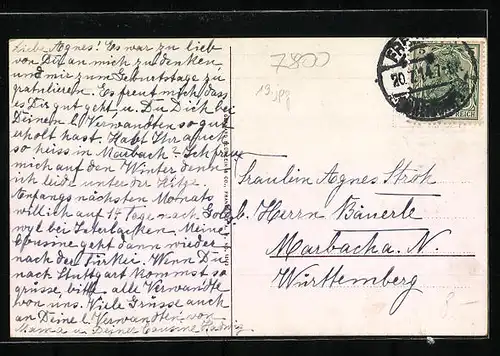 Liebe Agnes! Es war zu lieb
von Dir an mich zu denken,
und mir zum Geburtstage zu
gratulieren. Es freut mich, dass
es Dir gut geht u. Du Dich bei
Deinen l. Verwandten so gut
erholt hast. Habt Ihr auch
so heiss in Marbach? Ich freue
mich auf den Winter denn
ich leide unter der Hitze.
Anfangs nächsten Monats
will ich auf 14 Tage nach Golds-
wyl bei Interlacken. Meine
Cousine geht dann wieder
nach der Türkei. Wenn Du
nach Stuttgart kommst so
grüsse, bitte alle Verwandte
von uns. Viele Grüsse auch
an Deine l. Verwandten von
Mama u. Deiner Cousine Hedwig
7800
20.7.14.7-
REICH
Fräulein Agnes Stroh
b. Herrn Bäuerle
Marbach a. N.
Württemberg
8-